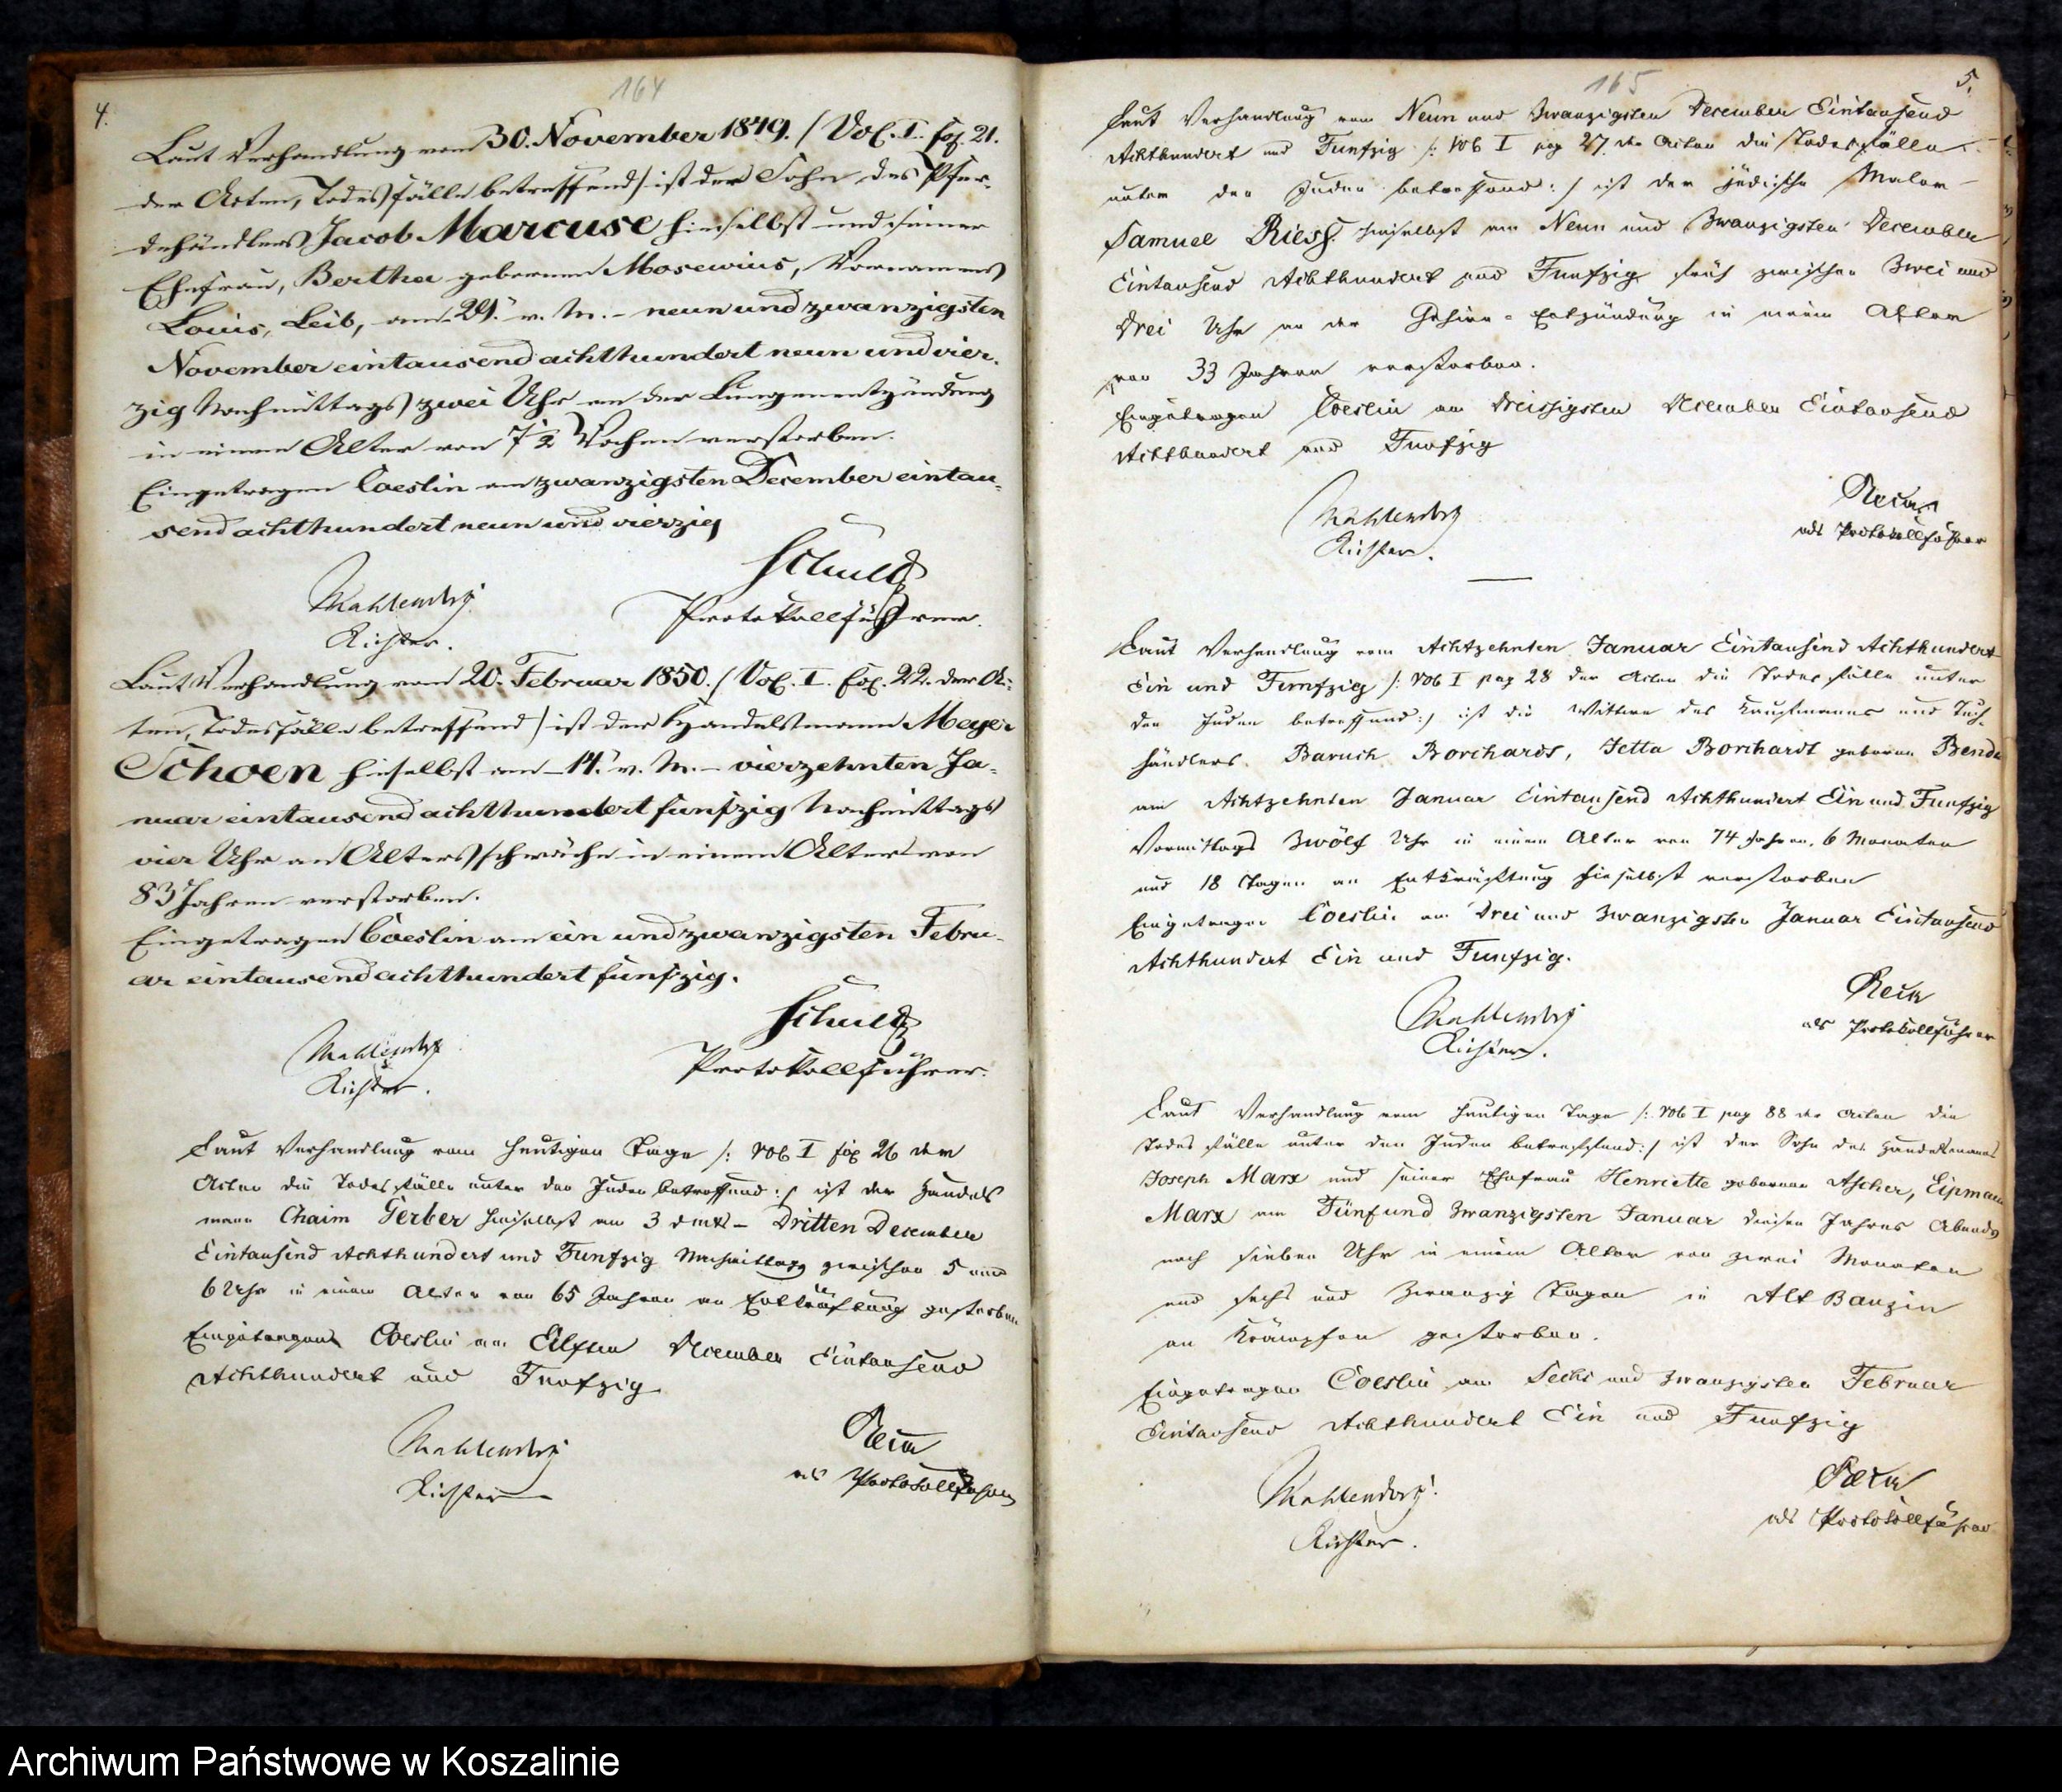 4.
164
Laut Verhandlung vom 30. November 1849. / Vol. I. fol. 21.
der Acten, Todesfälle betreffend / ist der Sohn des Pfer-
dehändlers Jacob Marcuse hieselbst und seiner
Ehefrau, Bertha gebornen Mosewius, Vornamens
Louis, Leib, am 29. v. M. – neun und zwanzigsten
November eintausend achthundert neun und vier-
zig Nachmittags zwei Uhr an der Lungenentzündung
in einem Alter von 7 1/2 Wochen verstorben.
Eingetragen Coeslin am zwanzigsten December eintau-
send achthundert neun und vierzig
Schulz
Mahlendorf
Protokollführer.
Richter.
Laut Verhandlung vom 20. Februar 1850. / Vol. I. fol. 22. der Ac-
ten, Todesfälle betreffend / ist der Handelsmann Meyer
Schoen hieselbst am – 14. v. M. – vierzehnten Ja-
nuar eintausend achthundert funfzig Nachmittags
vier Uhr an Altersschwäche in einem Alter von
83 Jahren verstorben.
Eingetragen Coeslin am ein und zwanzigsten Febru-
ar eintausend achthundert funfzig.
Schulz
Mahlendorf
Protokollführer.
Richter.
Laut Verhandlung vom heutigen Tage /: Vol I fol 26 der
Acten die Todesfälle unter den Juden betreffend :/ ist der Handels
mann Chaim Gerber hieselbst am 3 d Mts – Dritten December
Eintausend Achthundert und Funfzig Nachmittags zwischen 5 und
6 Uhr in einem Alter von 65 Jahren an Entkräftung gestorben
Eingetragen Coeslin am Elften December Eintausend
Achthundert und Funfzig
Mahlendorf
Richter
als Protokollführer
165
5.
Laut Verhandlung vom Neun und Zwanzigsten December Eintausend
Achthundert und Funfzig /: Vol I pag 27 der Acten die Todesfälle
unter den Juden betreffend :/ ist der jüdische Maler
Samuel Riess hieselbst am Neun und Zwanzigsten December
Eintausend Achthundert und Funfzig früh zwischen Zwei und
Drei Uhr an der Gehirn-Entzündung in einem Alter
von 33 Jahren verstorben.
Eingetragen Coeslin am Dreissigsten December Eintausend
Achthundert und Funfzig
Mahlendorf
als Protokollführer
Richter.
Laut Verhandlung vom Achtzehnten Januar Eintausend Achthundert
Ein und Funfzig /: Vol I pag 28 der Acten die Todesfälle unter
den Juden betreffend :/ ist die Wittwe des Kaufmanns und Tuch-
händlers Baruch Borchardt, Jetta Borchardt geboren Benda
am Achtzehnten Januar Eintausend Achthundert Ein und Funfzig
Vormittags Zwölf Uhr in einem Alter von 74 Jahren, 6 Monaten
und 18 Tagen an Entkräftung hieselbst verstorben
Eingetragen Coeslin am Drei und Zwanzigsten Januar Eintausend
Achthundert Ein und Funfzig.
Mahlendorf
als Protokollführer
Richter.
Laut Verhandlung vom heutigen Tage /: Vol I pag 88 der Acten die
Todesfälle unter den Juden betreffend :/ ist der Sohn des Handelsmanns
Joseph Marx und seiner Ehefrau Henriette geborenen Ascher, Lipmann
Marx am Fünf und Zwanzigsten Januar dieses Jahres Abends
nach sieben Uhr in einem Alter von zwei Monaten
und sechs und Zwanzig Tagen in Alt Banzin
an Krämpfen gestorben.
Eingetragen Coeslin am Sechs und Zwanzigsten Februar
Eintausend Achthundert Ein und Funfzig
Mahlendorf
als Protokollführer
Richter.
Archiwum Państwowe w Koszalinie